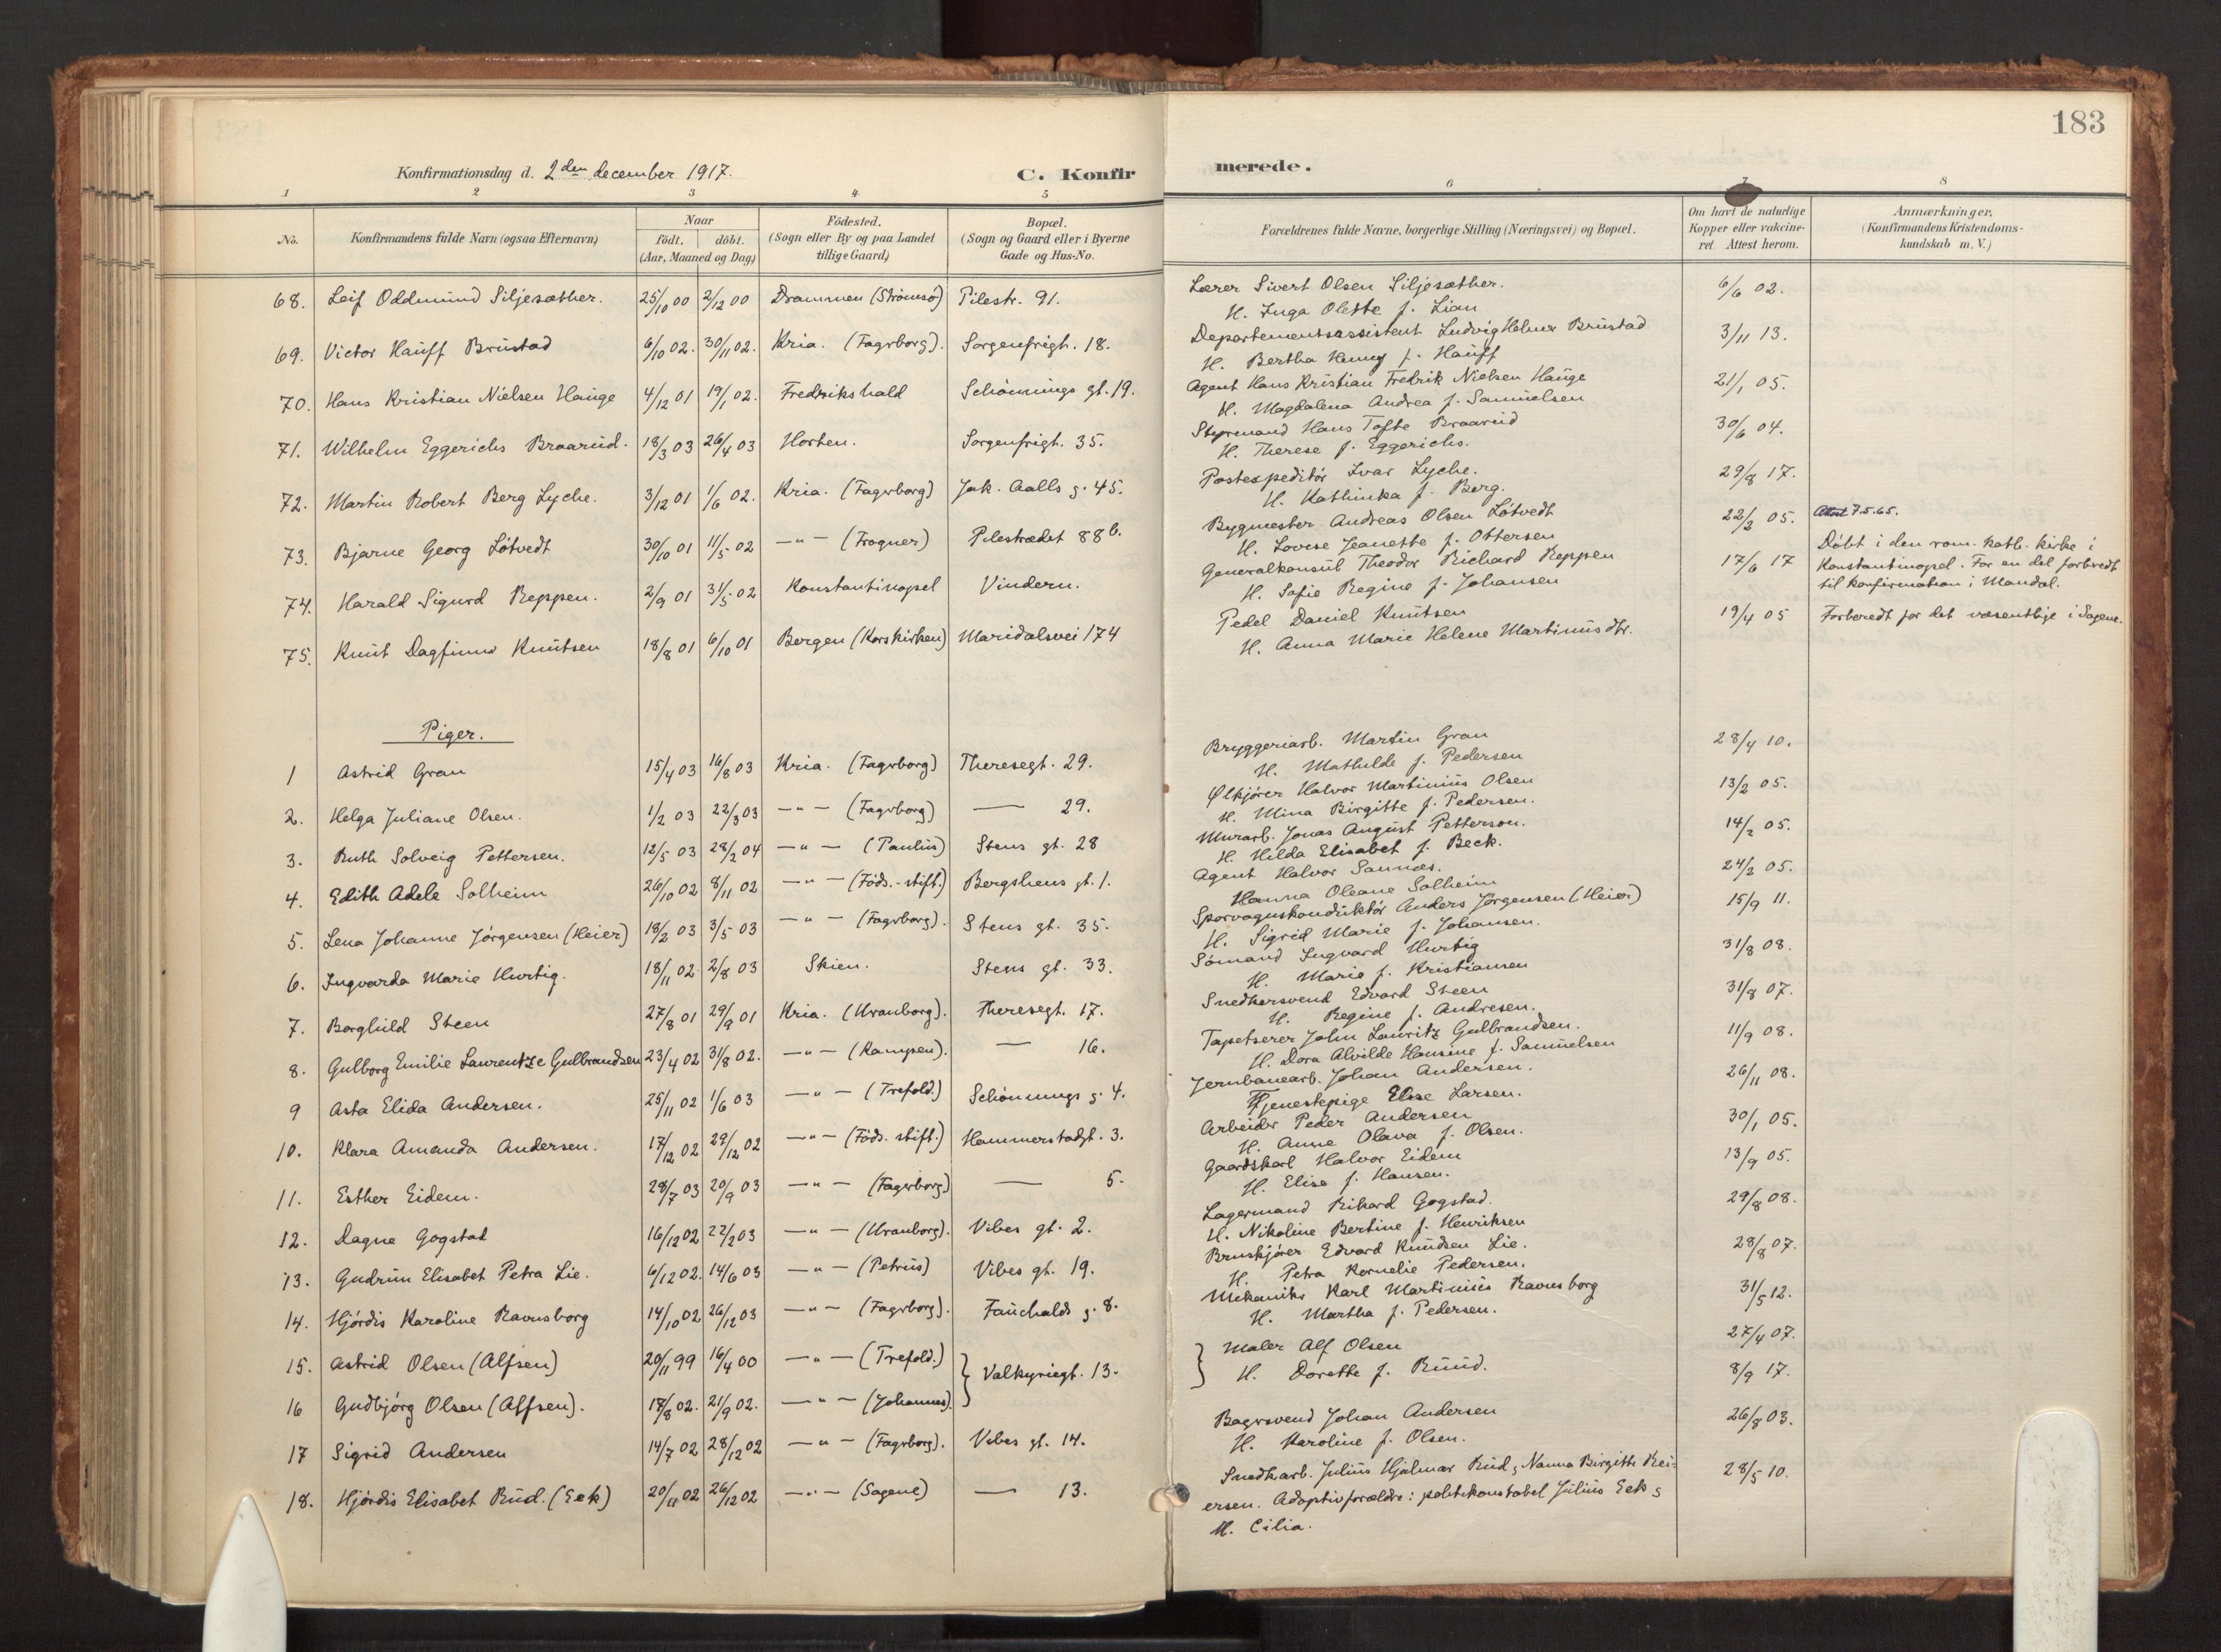 183
Konfirmationsdag d. 2den december 1917.
C. Konfirmerede.
1 2 3 4 5 6 7 8
No.
Konfirmandens fulde Navn (ogsaa Efternavn)
Naar
födt. döbt.
(Aar, Maaned og Dag)
Födested.
(Sogn eller By og paa Landet
tillige Gaard)
Bopæl.
(Sogn og Gaard eller i Byerne
Gade og Hus-No.
Forældrenes fulde Navne, borgerlige Stilling (Næringsvei) og Bopæl.
Om havt de naturlige
Kopper eller vakcine-
ret. Attest herom.
Anmærkninger,
(Konfirmandens Kristendoms-
kundskab m. V.)
68. Leif Oddmund Siljesæther. 25/10 00 2/12 00 Drammen (Strömsö) Pilestr. 91. Lærer Sivert Olsen Siljesæther. 6/6 02.
H. Inga Olette f. Lian
69. Victor Hauff Brustad 6/10 02. 30/11 02. Kria. (Fagerborg). Sorgenfrigt. 18. Departementsassistent Ludvig Helmer Brustad 3/11 13.
H. Bertha Henny f. Hauff
70. Hans Kristian Nielsen Hauge 4/12 01 19/1 02. Fredrikshald Schönnings gt. 19. Agent Hans Kristian Fredrik Nielsen Hauge 21/1 05.
H. Magdalena Andrea f. Samuelsen
71. Wilhelm Eggerichs Braarud. 18/3 03 26/4 03 Horten. Sorgenfrigt. 35. Styrmand Hans Tofte Braarud 30/6 04.
H. Therese f. Eggerichs.
72. Martin Robert Berg Lyche. 3/12 01 1/6 02. Kria. (Fagerborg) Jak. Aalls g. 45. Postexpeditör Ivar Lyche. 29/8 17.
H. Kathinka f. Berg.
73. Bjarne Georg Lötvedt 30/10 01 11/5 02 —"— (Frogner) Pilestrædet 88 b. Bygmester Andreas Olsen Lötvedt 22/2 05. Attest 7.5.65.
H. Lovise Jeanette f. Ottersen
74. Harald Sigurd Reppen. 2/9 01 31/5 02 Konstantinopel Vindern. Generalkonsul Theodor Richard Reppen 17/6 17 Döbt i den rom. kath. kirke i
Konstantinopel. For en del forberedt
til konfirmation i Mandal.
H. Sofie Regine f. Johansen
75. Knut Dagfinn Knutsen 18/8 01 6/10 01 Bergen (Korskirken) Maridalsvei 174 Pedel Daniel Knutsen 19/4 05 Forberedt for det væsentlige i Sagene.
H. Anna Marie Helene Martinusdtr.
Piger.
1 Astrid Gran 15/4 03 16/8 03 Kria. (Fagerborg) Theresegt. 29. Bryggeriarb. Martin Gran 28/4 10.
H. Mathilde f. Pedersen
2. Helga Juliane Olsen. 1/2 03 22/3 03 —"— (Fagerborg) — 29. Ølkjörer Halvor Martinius Olsen 13/2 05.
H. Mina Birgitte f. Pedersen.
3. Ruth Solveig Pettersen. 12/5 03 28/2 04 —"— (Paulus) Stens gt. 28 Murarb. Jonas August Petterson. 14/2 05.
H. Hilda Elisabet f. Beck.
4. Edith Adele Solheim 26/10 02 8/11 02 —"— (Föds.-stift.) Bergsliens gt. 1. Agent Halvor Sannæs. 24/2 05.
Hanna Oleane Solheim
5. Lena Johanne Jörgensen (Heier) 18/2 03 3/5 03 —"— (Fagerborg). Stens gt. 35. Sporvognskonduktör Anders Jörgensen (Heier) 15/9 11.
H. Sigrid Marie f. Johansen.
6. Ingvarda Marie Hurtig. 18/11 02 2/8 03 Skien. Stens gt. 33. Sömand Ingvard Hurtig 31/8 08.
H. Marie f. Kristiansen
7. Borghild Steen 27/8 01 29/9 01 Kria. (Uranborg). Theresegt. 17. Snedkersvend Edvard Steen 31/8 07.
H. Regine f. Andresen.
8. Gulborg Emilie Laurentze Gulbrandsen 23/4 02 31/8 02. —"— (Kampen). — 16. Tapetserer John Lauritz Gulbrandsen. 11/9 08.
H. Dora Alvilde Hansine f. Samuelsen
9 Asta Elida Andersen. 25/11 02 1/6 03 —"— (Trefold.) Schönnings g. 4. Jernbanearb. Johan Andersen. 26/11 08.
Tjenestepige Elise Larsen.
10. Klara Amanda Andersen. 17/12 02 29/12 02 —"— (Föds. stift.) Hammerstadgt. 3. Arbeider Peder Andersen 30/1 05.
H. Anne Olava f. Olsen.
11. Esther Eidem. 28/7 03 20/9 03 —"— (Fagerborg) — 5. Gaardskarl Halvor Eidem 13/9 05.
H. Elise f. Hansen.
12. Dagne Gogstad 16/12 02 22/2 03 —"— (Uranborg). Vibes gt. 2. Lagermand Rikard Gogstad. 29/8 08.
H. Nikoline Bertine f. Henriksen
13. Gudrun Elisabet Petra Lie. 6/12 02. 14/6 03 —"— (Petrus) Vibes gt. 19. Bruskjörer Edvard Knudsen Lie. 28/8 07.
H. Petra Kornelie Pedersen.
14. Hjördis Karoline Ravnsborg 14/10 02 26/12 03 —"— (Fagerborg). Fauchalds g. 8. Mekaniker Karl Martinius Ravnsborg 31/5 12.
H. Martha f. Pedersen.
15. Astrid Olsen (Alfsen) 20/11 99 16/4 00 —"— (Trefold.) Valkyriegt. 13. Maler Alf Olsen 27/4 07.
16 Gudbjörg Olsen (Alfsen). 18/8 02. 21/9 02. —"— (Johannes). H. Dorette f. Ruud. 8/9 17.
17 Sigrid Andersen 14/7 02 28/12 02 —"— (Fagerborg). Vibes gt. 14. Bagersvend Johan Andersen 26/8 03.
H. Karoline f. Olsen.
18. Hjördis Elisabet Rud. (Eek) 20/11 02 26/12 02 —"— (Sagene) — 13. Snedkerarb. Julius Hjalmar Rud, Nanna Birgitte Rei- 28/5 10.
ersen. Adoptivforældre: politikonstabel Julius Eek &
H. Cilia.